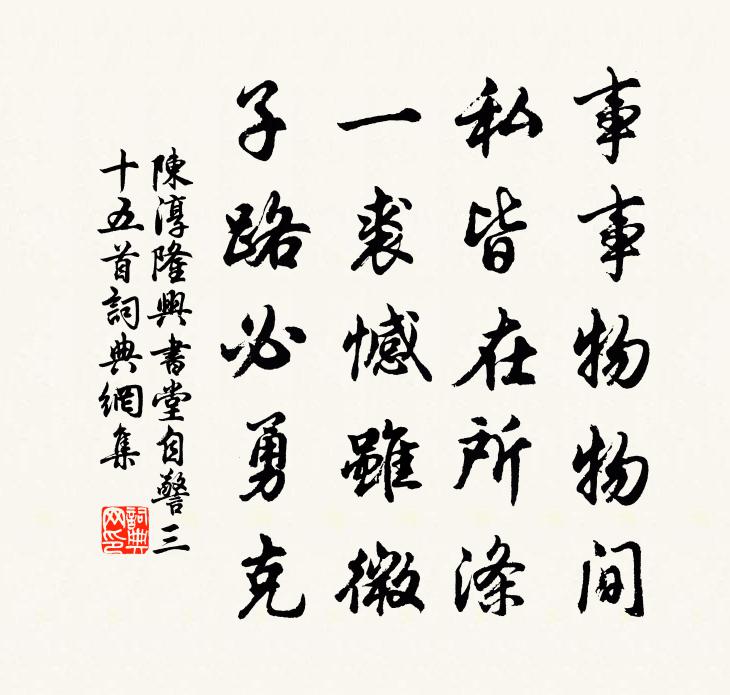 事事物物间
私皆在所涤
一裘憾雖微
子路必勇克
陳淳隆興書堂自警三
十五首詞典網集
詞典网印